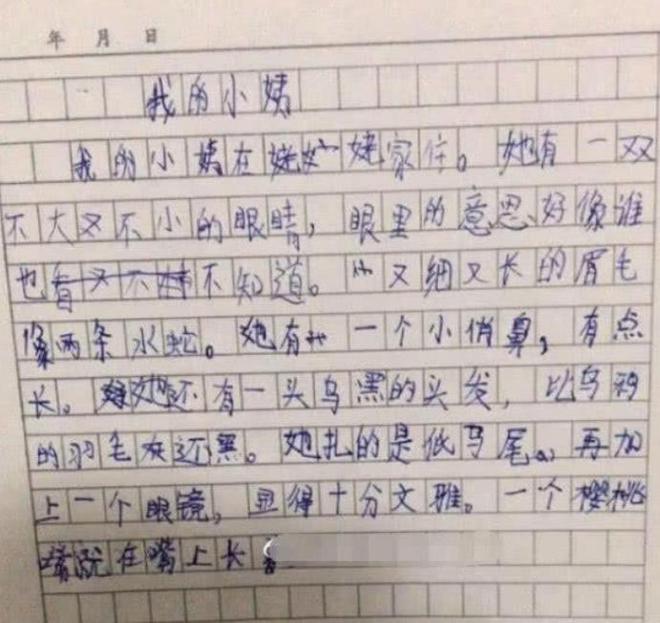 年 月 日
我的小姨
我的小姨在姥姥家住。她有一双
不大又不小的眼睛，眼里的意思好像谁
也不知道。又细又长的眉毛
像两条水蛇。她有一个小俏鼻，有点
长。她还有一头乌黑的头发，比乌鸦
的羽毛还黑。她扎的是低马尾。再加
上一个眼镜，显得十分文雅。一个樱桃
嘴就在嘴上长